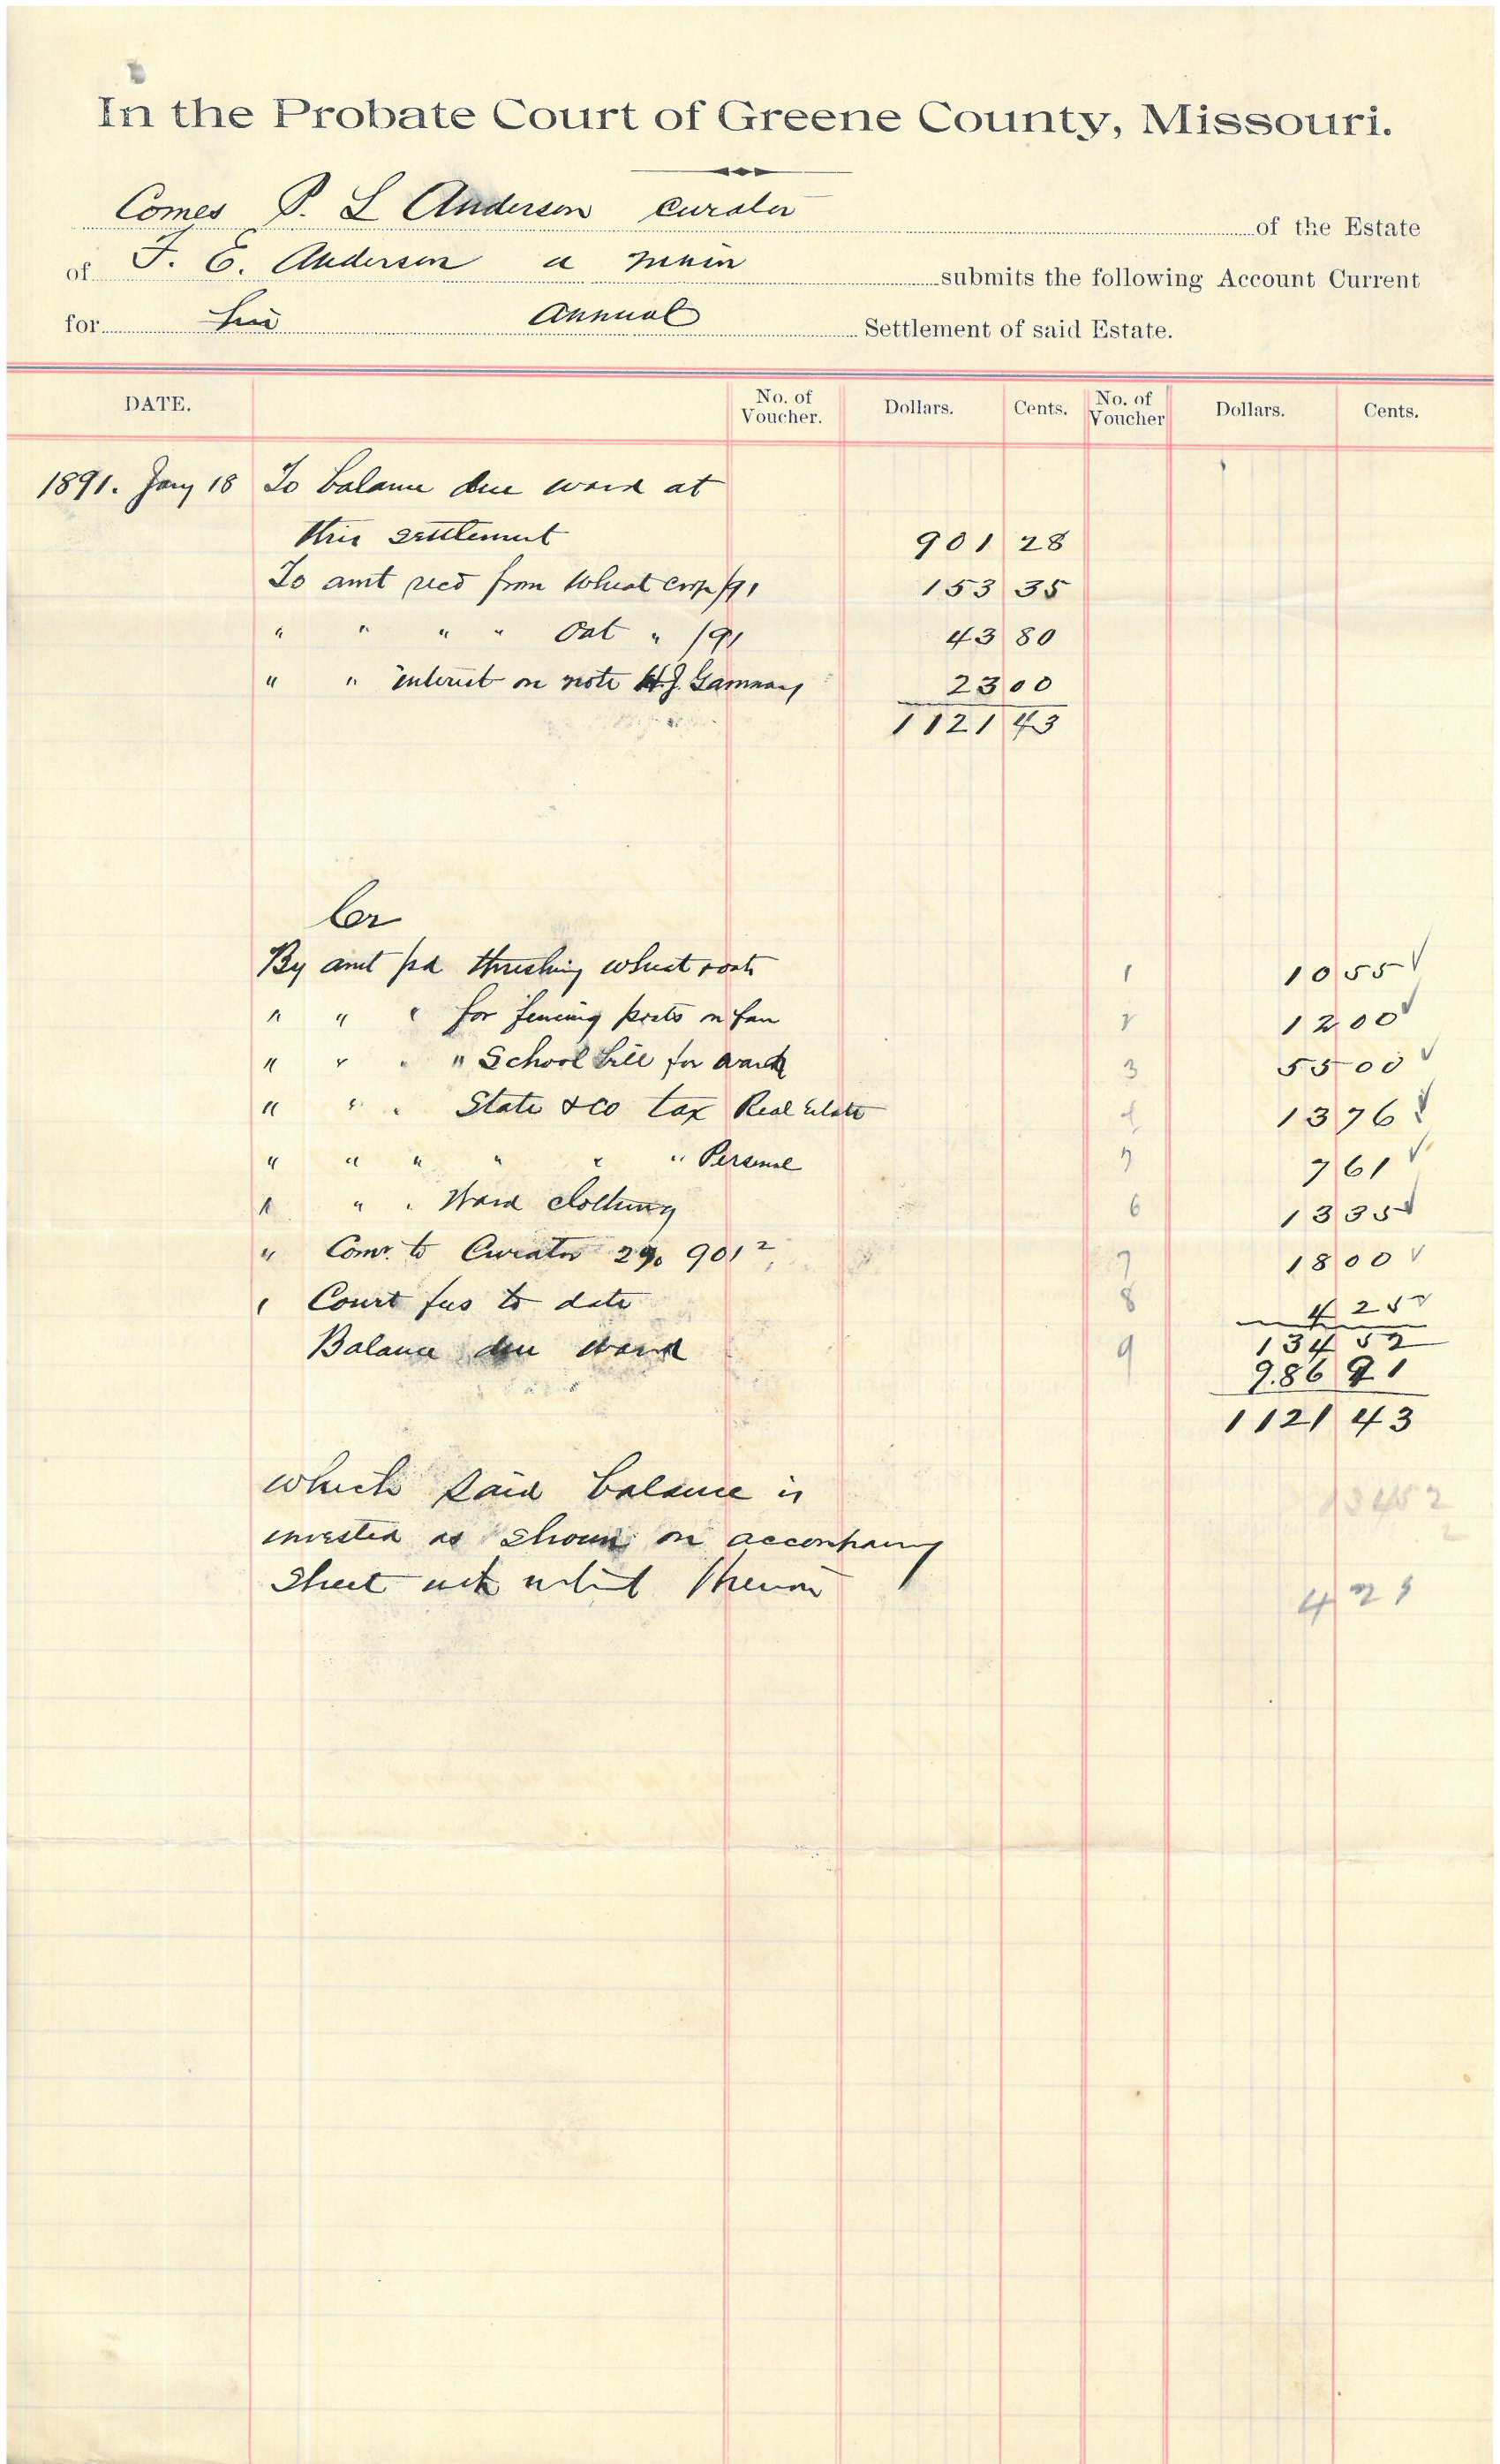 In the Probate Court of Greene County, Missouri.
Comes P. L Anderson curator of the Estate
of F. E. Anderson a minor submits the following Account Current
for his Annual Settlement of said Estate.
DATE. No. of Voucher. Dollars. Cents. No. of Voucher Dollars. Cents.
1891. Jany 18 To balance due ward at
this settlement 901 28
To amt recd from Wheat crop /91 153 35
" " " " Oat " /91 43 80
" " interest on note H.J. 23 00
1121 43
Cr
By amt pd threshing wheat & oats 1 10 55 ✓
" " " for fencing posts on farm 2 12 00 ✓
" " " " School bill for ward 3 55 00 ✓
" " " State & co tax Real Estate 4 13 76 ✓
" " " " " " Personal 5 7 61 ✓
" " " Ward clothing 6 13 35 ✓
" Comr. to Curator 2% 901 2 7 18 00 ✓
" Court fees to date 8 4 25 ✓
134 52
Balance due ward 9 986 91
1121 43
which said balance is
invested as shown on accompany
sheet
134 52
2
4 25